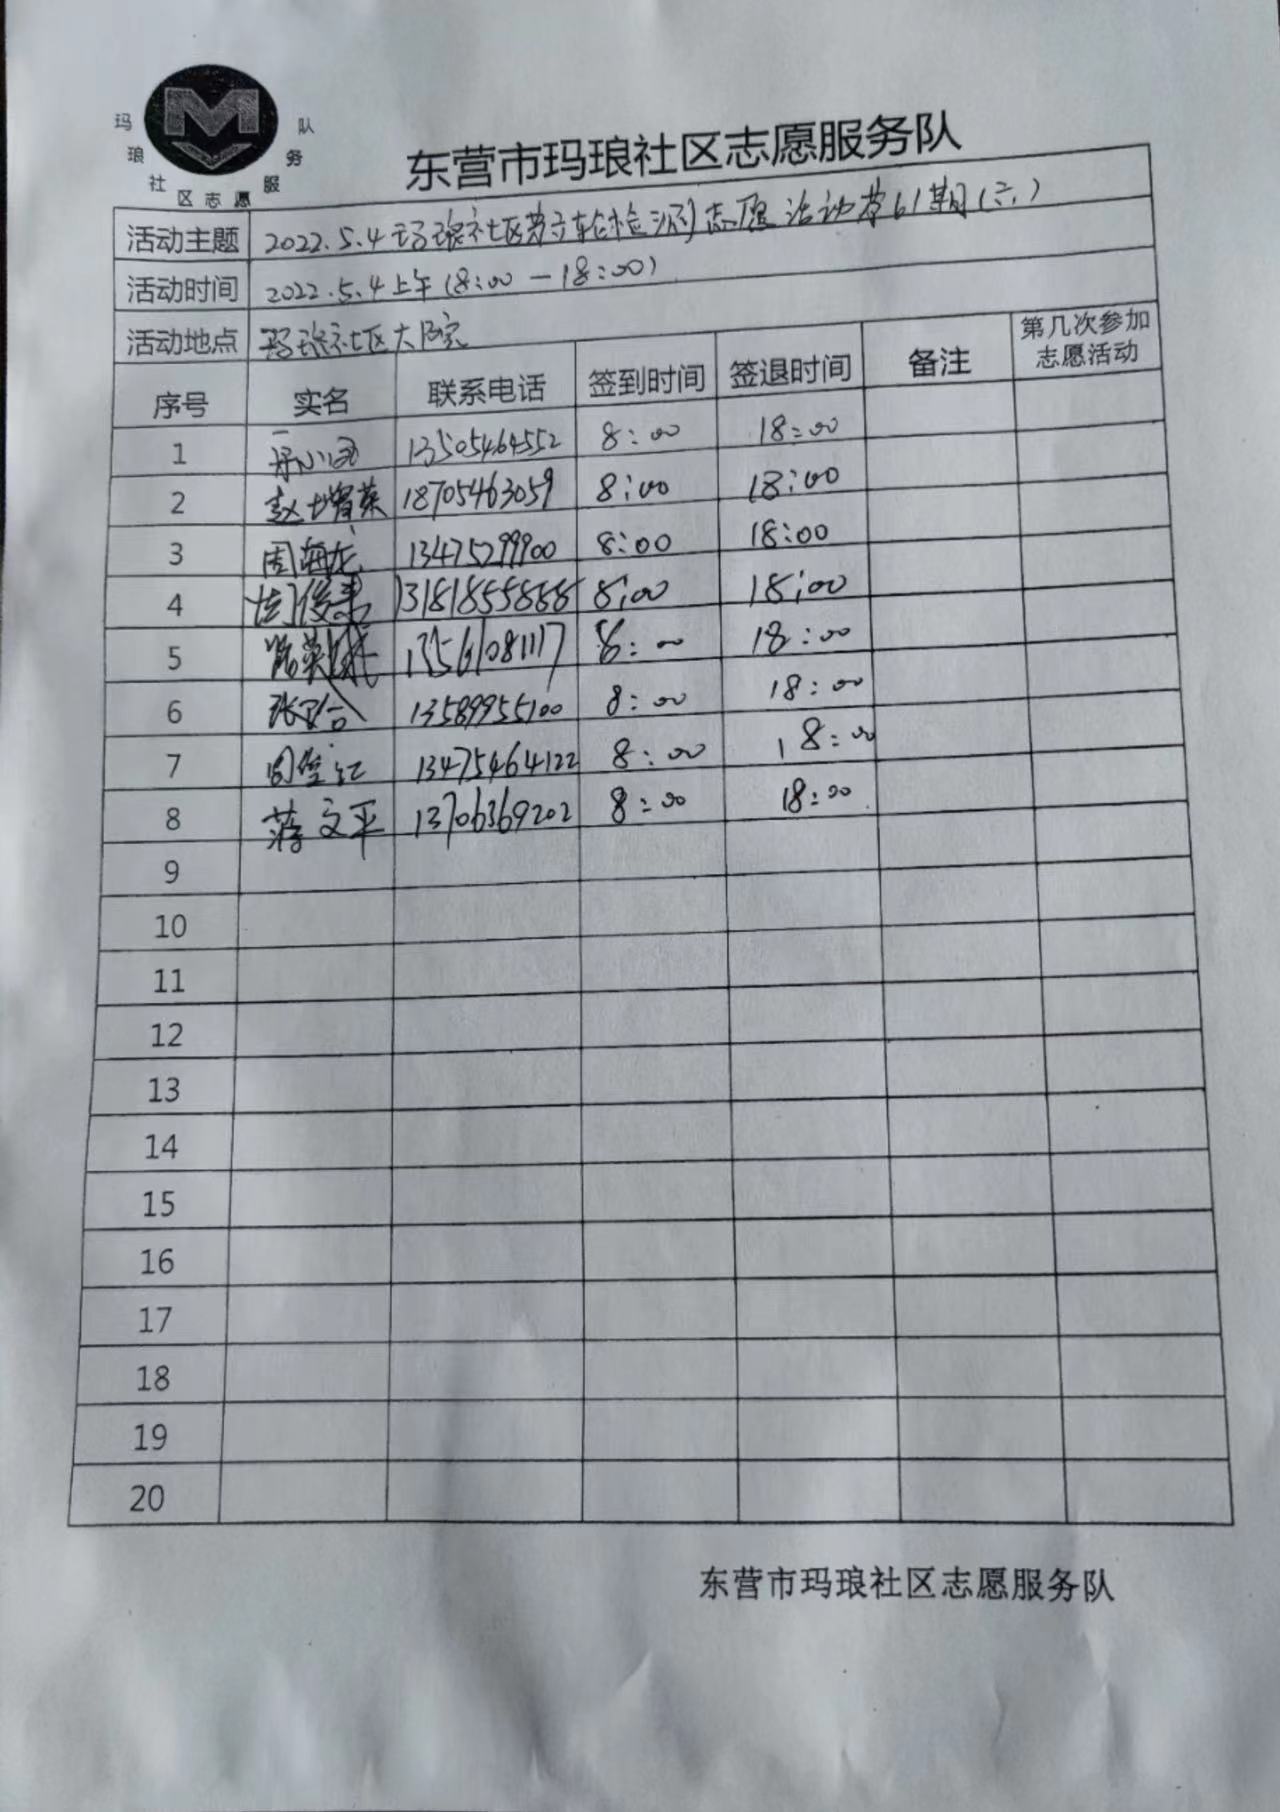 玛琅社区志愿服务队
东营市玛琅社区志愿服务队
活动主题 2022.5.4玛琅社区第六轮检测志愿活动第61期(六)
活动时间 2022.5.4上午(8:00-18:00)
活动地点 玛琅社区大院
序号 实名 联系电话 签到时间 签退时间 备注 第几次参加志愿活动
1 13505464552 8:00 18:00
2 赵增荣 18705463059 8:00 18:00
3 周海龙 13475299900 8:00 18:00
4 8:00 18:00
5 13561081117 8:00 18:00
6 13589955100 8:00 18:00
7 13475464122 8:00 18:00
8 蒋文平 13706369202 8:00 18:00
9
10
11
12
13
14
15
16
17
18
19
20
东营市玛琅社区志愿服务队